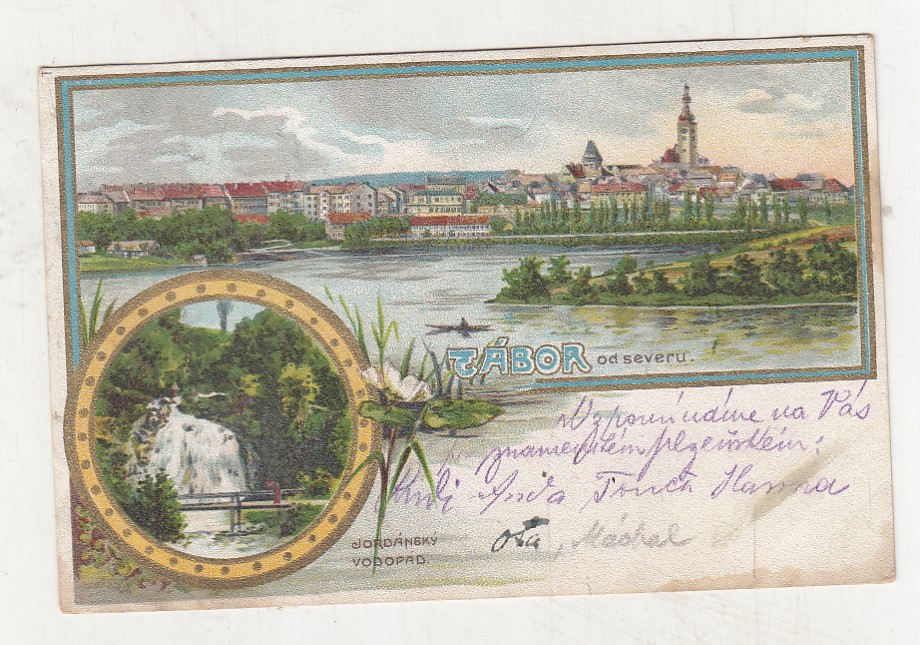 TÁBOR od severu.
Vzpomínáme na Vás
znamenitém plzeňském:
Anda Tonča Hanna
Ota, Máchal
JORDÁNSKÝ
VODOPÁD.